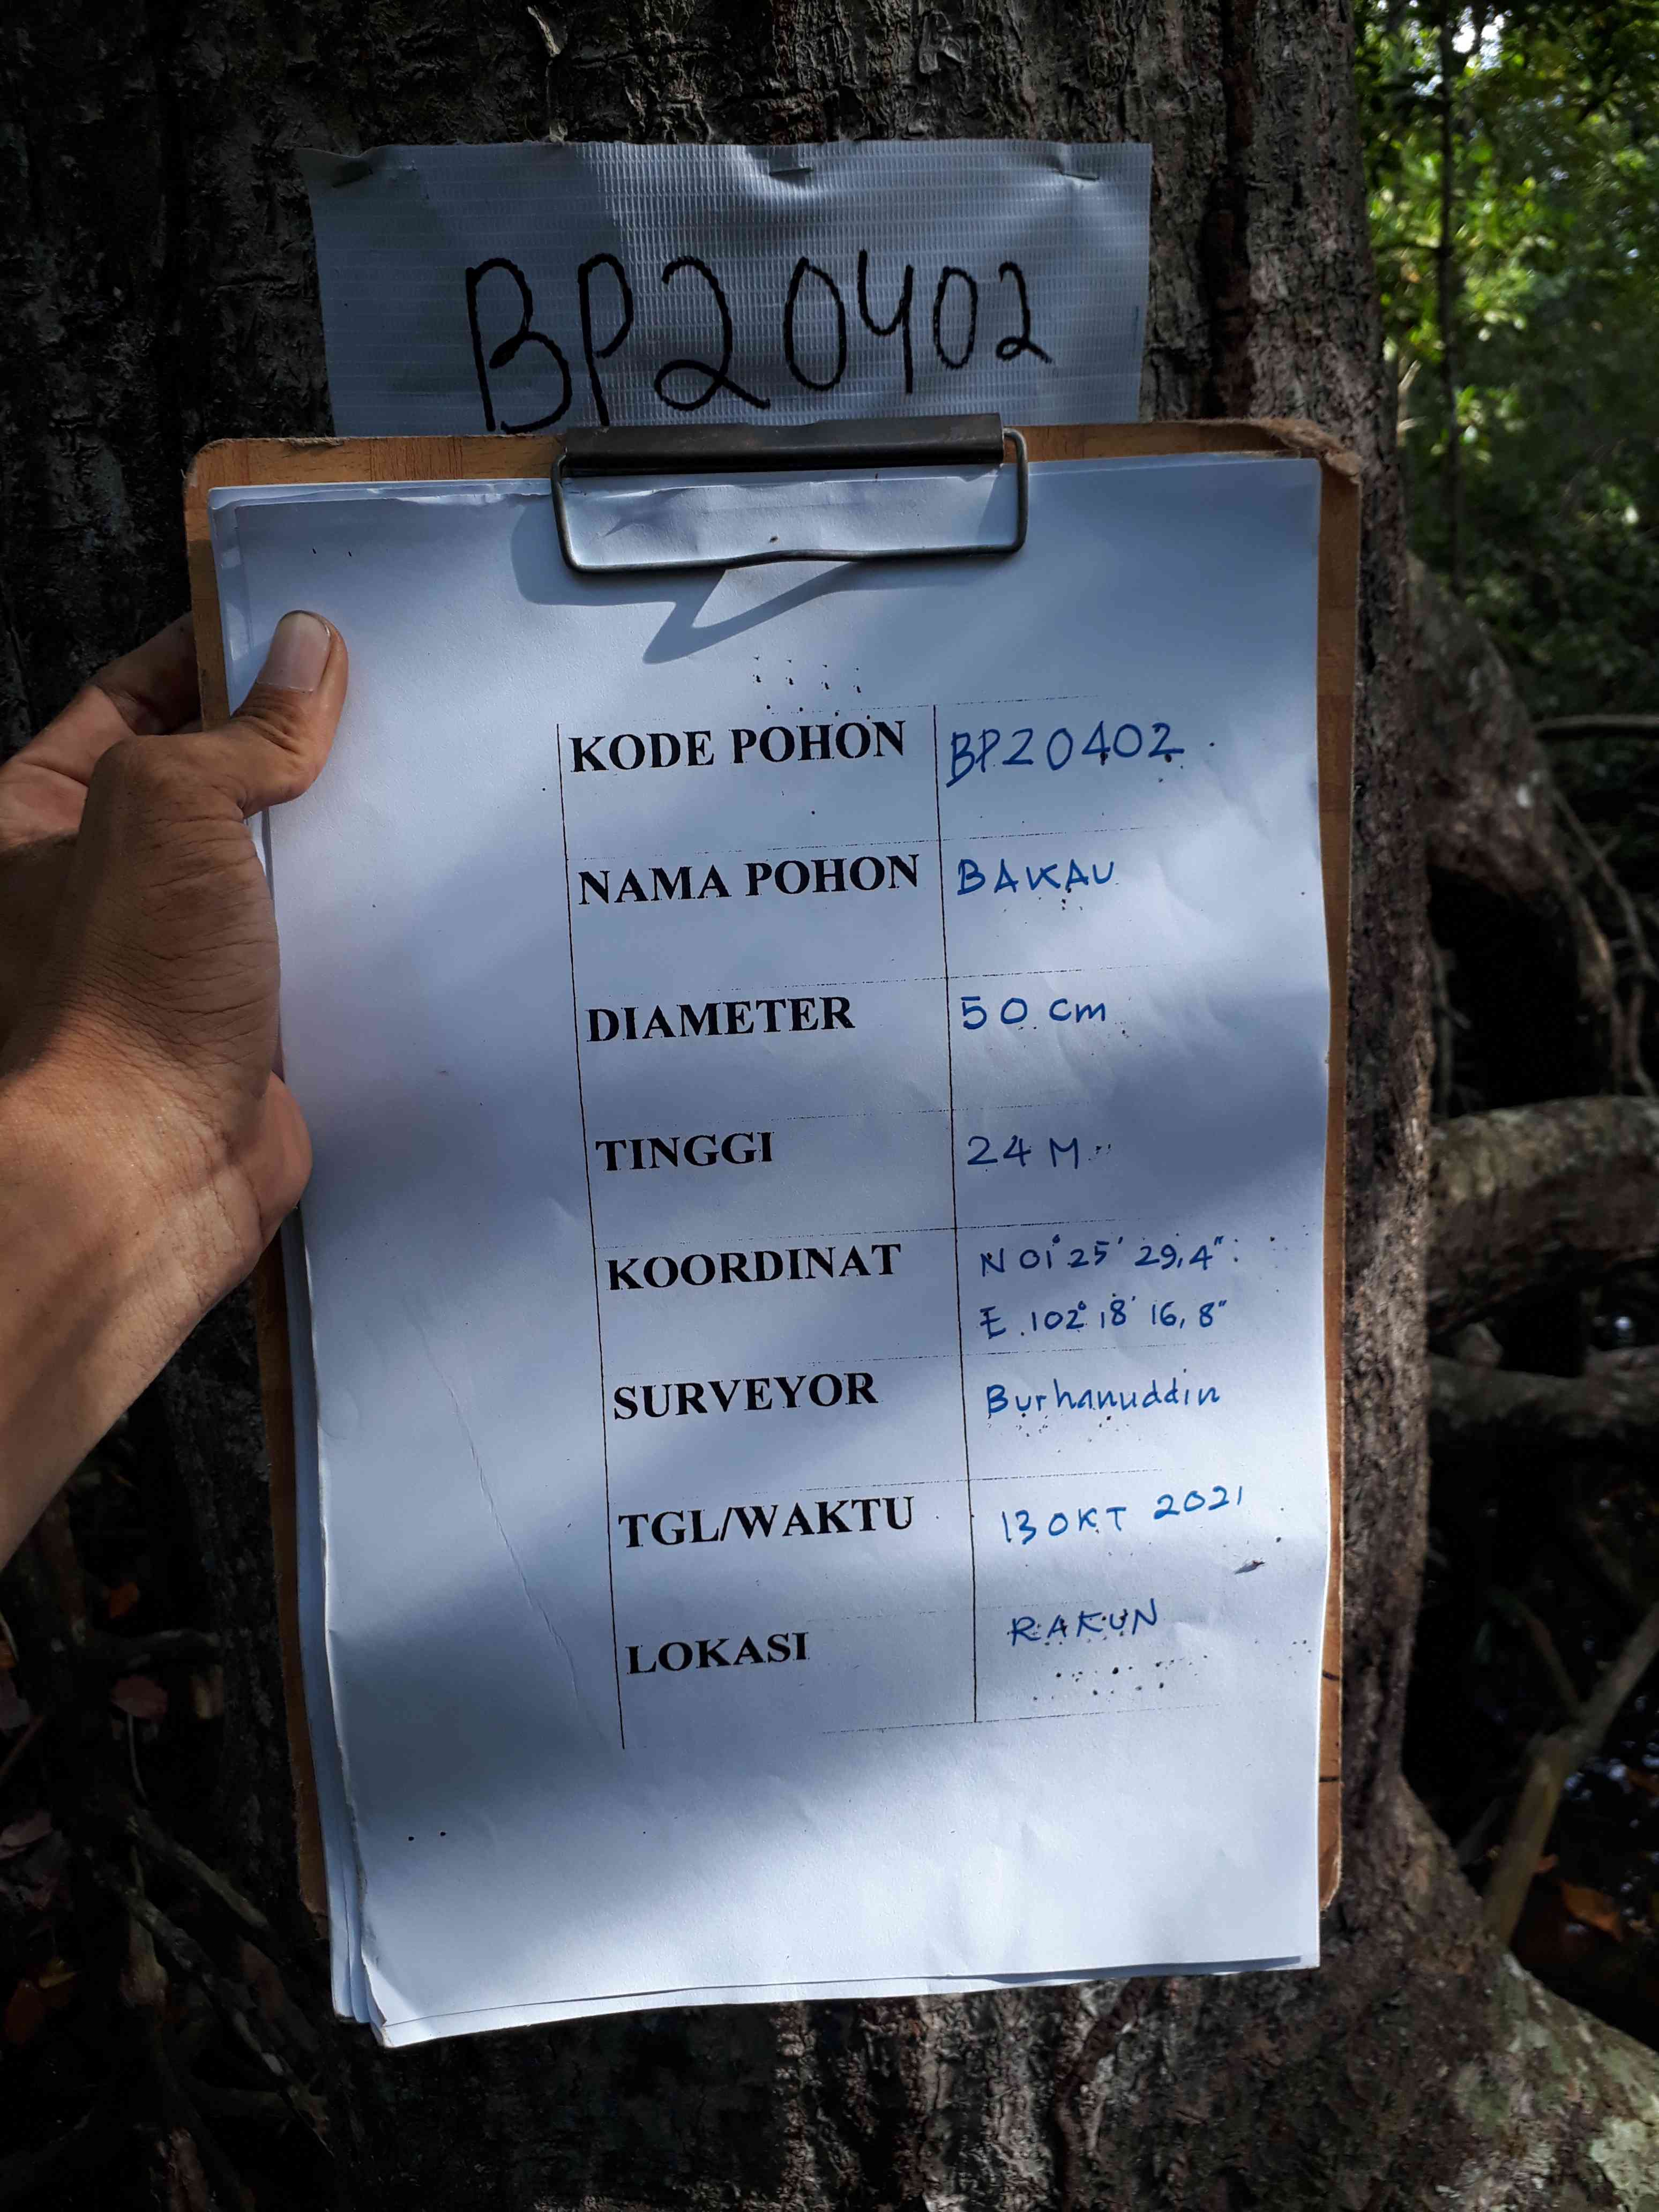 BP20402
KODE POHON BP20402
NAMA POHON BAKAU
DIAMETER 50 cm
TINGGI 24 M
KOORDINAT N 01° 25' 29,4"
E. 102° 18' 16,8"
SURVEYOR Burhanuddin
TGL/WAKTU 13 OKT 2021
LOKASI RAKUN